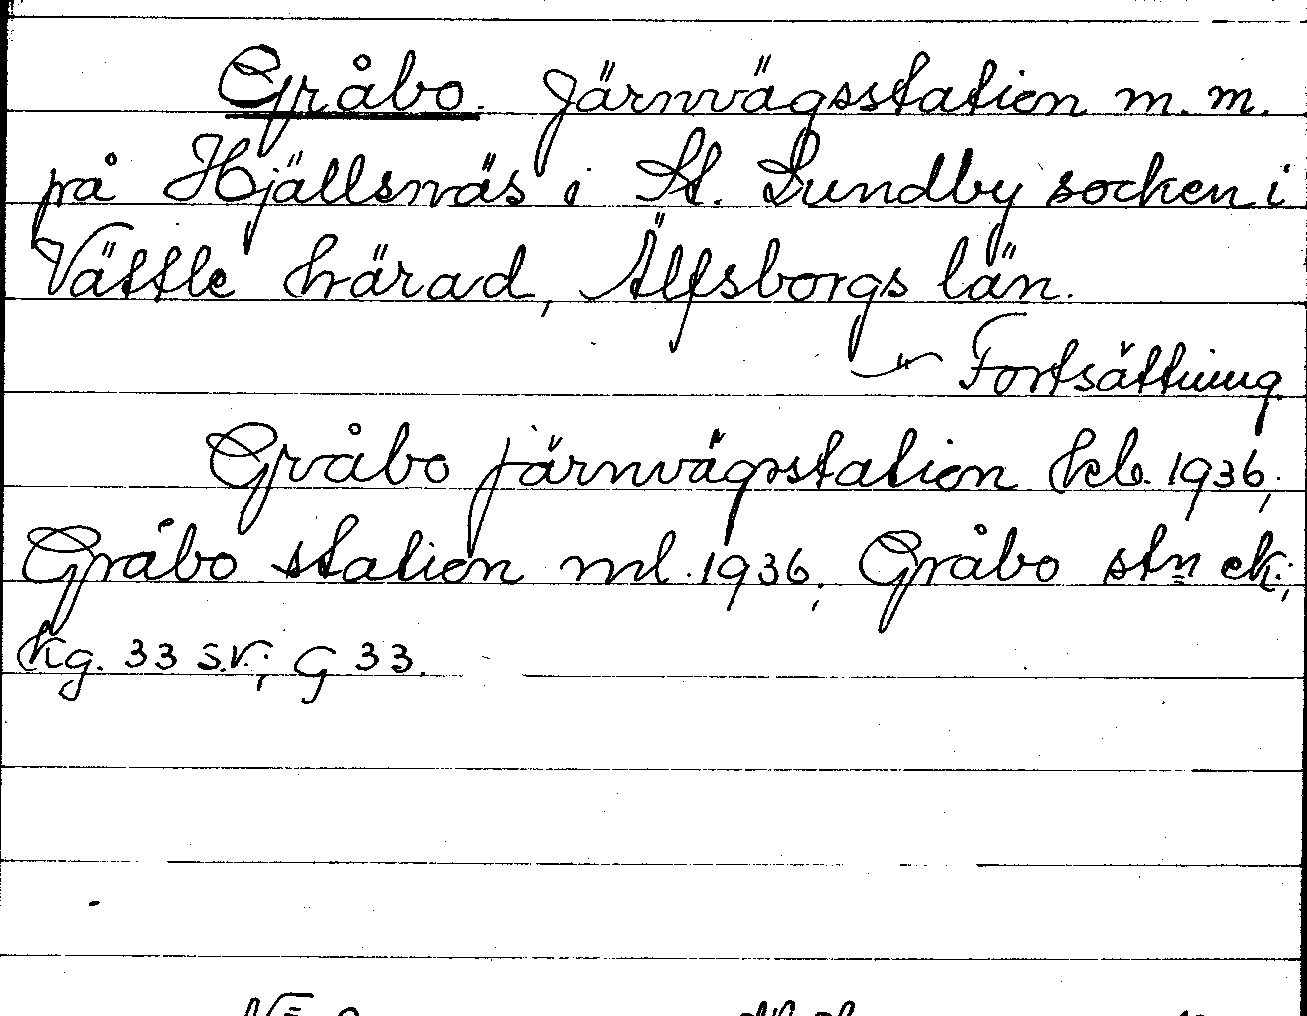 Gråbo. Järnvägsstation m.m.
på Hjällsnäs i St. Lundby socken i
Vättle härad, Älfsborgs län.
Fortsättning
Gråbo järnvägsstation kcb. 1936;
Gråbo station ml. 1936; Gråbo stn ek.;
kg. 33 s.v.; G 33.